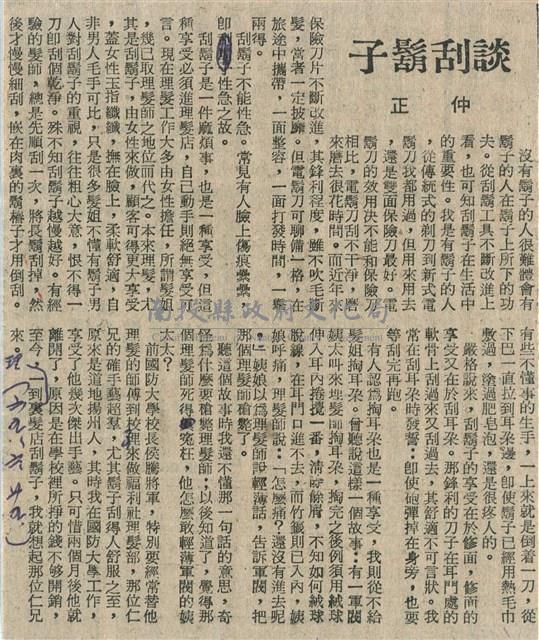 談刮鬍子
仲正
沒有鬍子的人很難體會有
鬍子的人在鬍子上所下的功
夫。從刮鬍工具不斷改進上
看，也可知刮鬍子在生活中
的重要性。我是有鬍子的人
，從傳統式的剃刀到新式電
鬍刀我都用過，但用來用去
，還是雙面保險刀最好。電
鬍刀的效用決不能和保險刀
相比，電鬍刀刮不干淨，磨
來磨去很花時間。而近年來
保險刀片不斷改進，其鋒利程度，雖不吹毛斷
髮，當者一定披靡。但電鬍刀可聊備一格，在
旅途中攜帶，一面整容，一面打發時間，一舉
兩得。
刮鬍子不能性急。常見有人臉上傷痕纍纍，
即 子性急之故。
刮鬍子是一件麻煩事，也是一種享受，但這
種享受必須進理髮店，自己動手則絕無享受可
言。現在理髮工作大多由女性擔任，所謂髮姐
，幾已取理髮師之地位而代之。本來理髮，尤
其是刮鬍子，由女性來做，顧客可得更大享受
，蓋女性玉指纖纖，撫在臉上，柔軟舒適，自
非男人毛手可比，只是很多髮姐不懂有鬍子男
人對刮鬍子的重視，往往粗心大意，恨不得一
刀即刮個乾淨。殊不知刮鬍子越慢越好。有經
驗的髮師，總是先順刮一次，將長鬍刮掉，然
後才慢慢細刮，嵌在肉裏的鬍樁子才用倒刮。
有些不懂事的生手，一上來就是倒着一刀，從
下巴一直拉到耳朵邊，即使鬍子已經用熱毛巾
敷過，塗過肥皂泡，還是很疼人的。
嚴格說來，刮鬍子的享受在於修面，修面的
享受又在於刮耳朵。那鋒利的刀子在耳門處的
軟骨上刮過來又刮過去，其舒適不可言狀。我
常在刮耳朵時發誓：即使砲彈掉在身旁，也要
等刮完再跑。
有人認為掏耳朵也是一種享受，我則從不給
髮姐掏耳朵。曾聽說這樣一個故事：有一軍閥
姨太叫來理髮師掏耳朵，掏完之後例須用絨球
伸入耳內捲攪一番，清 餘屑，不知如何絨球
脫線，在耳門口進不去，而竹籤則已入內，姨
娘呼痛，理髮師說：「怎麼痛？還沒有進去呢
。」姨娘以為理髮師說輕薄話，告訴軍閥，把
那個理髮師槍斃了。
聽這個故事時我還不懂那一句話的意思，奇
怪為什麼要槍斃理髮師；以後知道了，覺得那
個理髮師死得冤枉，他怎麼敢輕薄軍閥的姨
太太？
前國防大學校長侯騰將軍，特別要經常替他
理髮的師傅到校裡來做福利社理髮部，那位仁
兄的確手藝超羣，尤其鬍子刮得人舒服之至，
原來是道地揚州人，其時我在國防大學工作，
享受了他幾次傑出手藝。只可惜兩個月後他就
離開了，原因是在學校裡所掙的錢不够開銷，
至今，一到裏髮店刮鬍子，我就想起那位仁兄
來。